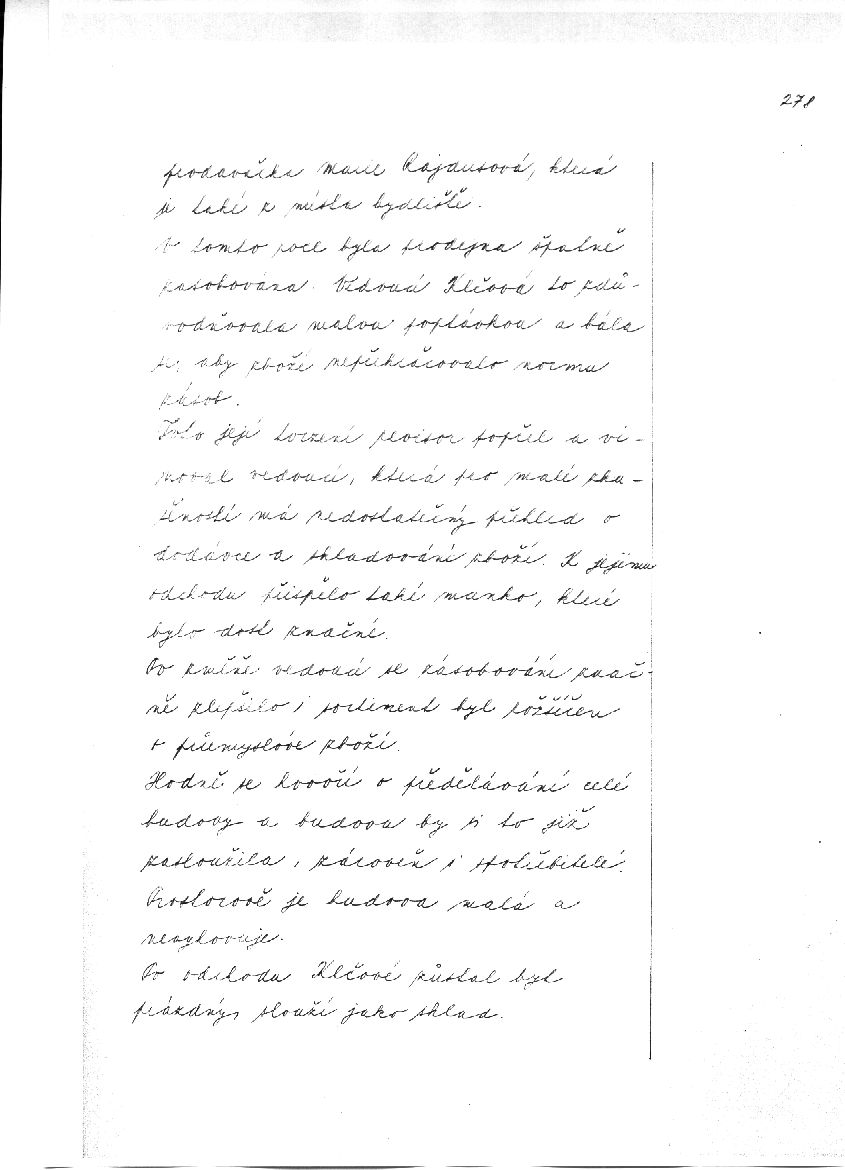 278
prodavačka Marie Rajdusová, která
je také z místa bydliště.
V tomto roce byla prodejna špatně
zasobována. Vedoucí Klčová to zdů-
vodňovala malou poptávkou a bála
se, aby zboží nepřekračovalo normu
zásob.
Toto její tvrzení revisor popřel a vi-
noval vedoucí, která pro malé zku-
šenosti má nedostatečný přehled o
dodávce a skladování zboží. K jejímu
odchodu přispělo také manko, které
bylo dost značné.
Po změně vedoucí se zásobování znač-
ně zlepšilo i sortiment byl rozšířen
o průmyslové zboží.
Hodně se hovoří o předělávání celé
budovy a budova by si to již
zasloužila, zároveň i spotřebitelé.
Prostorově je budova malá a
nevyhovuje.
Po odchodu Klčové zůstal byt
prázdný, slouží jako sklad.